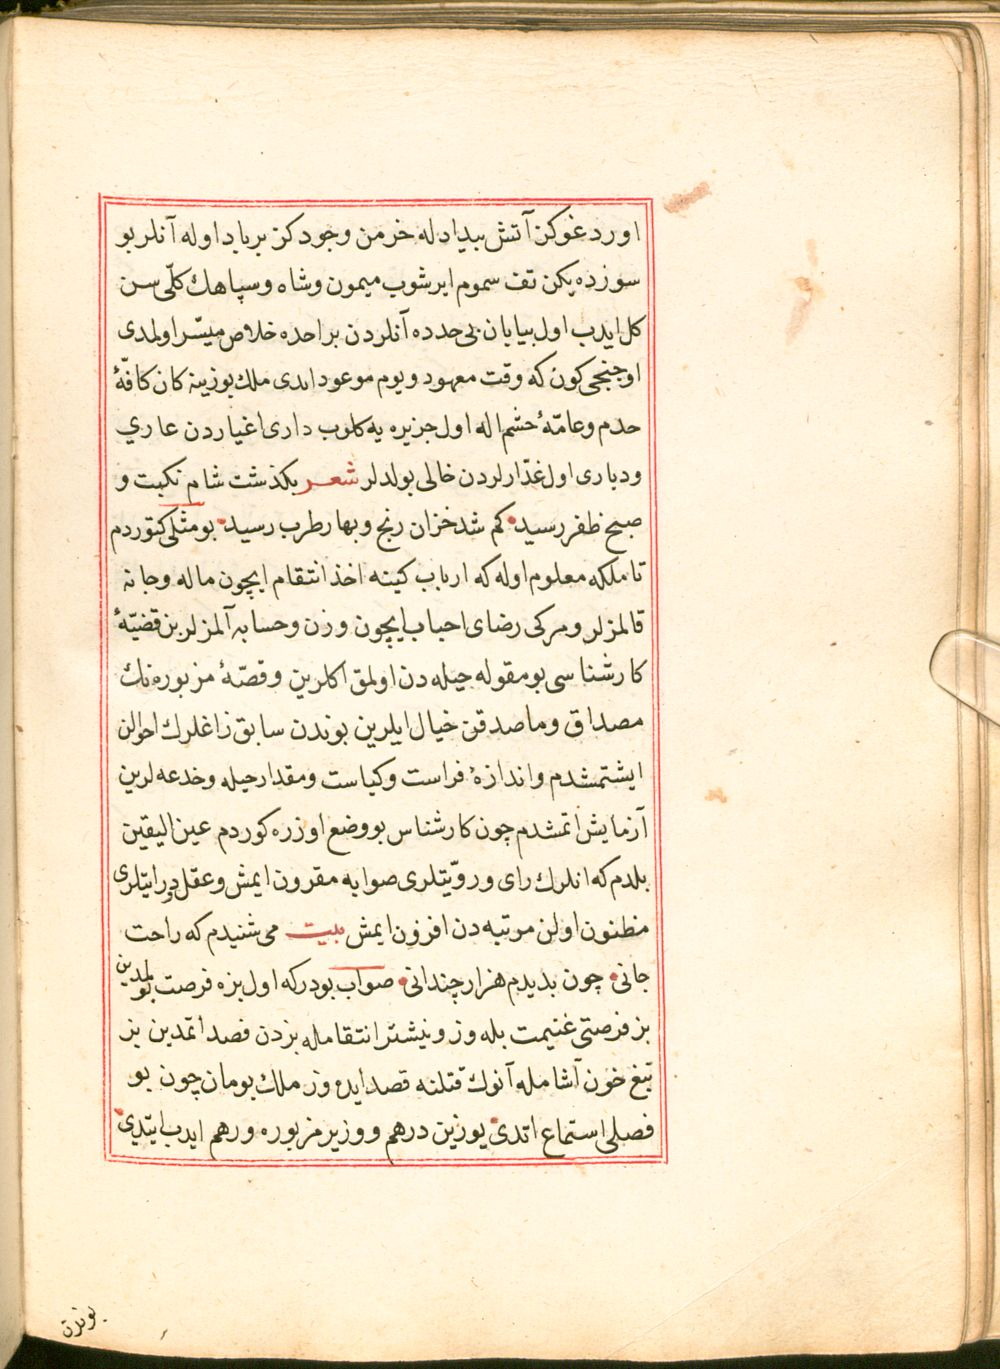 اوردغوكن آتش بيداد له خرمن وجودكز برباد اوله آنلر بو
سوزده يكن تف سموم ايرشوب ميمون وشاه وسپاهك كلّى سن
كل ايدب اول بيابان بى حدده آنلردن بر احده خلاص ميسّر اولمدى
اوچنجى كون كه وقت معهود ويوم موعود ايدى ملك بوزينه كان كافّهٔ
خدم وعامّهٔ حشم اله اول جزيره يه كلوب دارى اغياردن عارى
وديارى اول غدّارلردن خالى بولدلر شعر بكذشت شام نكبت و
صبح ظفر رسيد كم شد خزان رنج وبهار طرب رسيد بو مثلى كتوردم
تا ملكه معلوم اوله كه ارباب كينه اخذ انتقام ايچون ماله وجانه
قالمزلر ومركى رضاى احباب ايچون وزن وحسابه آلمزلر بز قضيّهٔ
كارشناسى بو مقوله حيله دن اولمق اكلرين وقصّهٔ مزبوره نك
مصداق وماصدقن خيال ايلرين بوندن سابق زاغلرك احوالن
ايشتمشدم واندازهٔ فراست وكياست ومقدار حيله وخدعه لرين
آزمايش اتمشدم چون كارشناس بو وضع اوزره كوردم عين اليقين
بلدم كه انلرك راى ورويّتلرى صوابه مقرون ايمش وعقل ودرايتلرى
مظنون اولن مرتبه دن افزون ايمش بيت مى شنيدم كه راحت
جانى چون بديدم هزار چندانى صواب بودركه اول بزه فرصت بولمدين
بز فرصتى غنيمت بله وز ونيشتر انتقامله بزدن فصد اتمدين بز
تيغ خون آشامله آنوك قتلنه قصد ايده وز ملك بومان چون بو
فصلى استماع اتدى يوزين درهم ووزير مزبوره ورهم ايدب ايتدى
بوندن